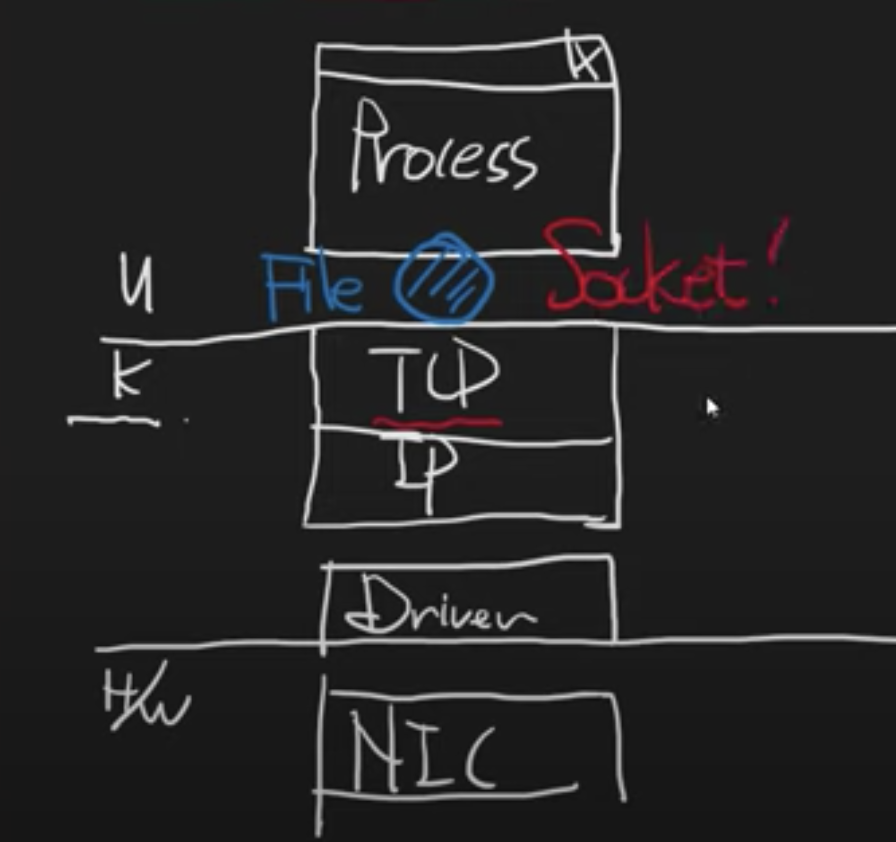 Process
U File Socket!
K TCP
IP
Driver
H/W
NIC